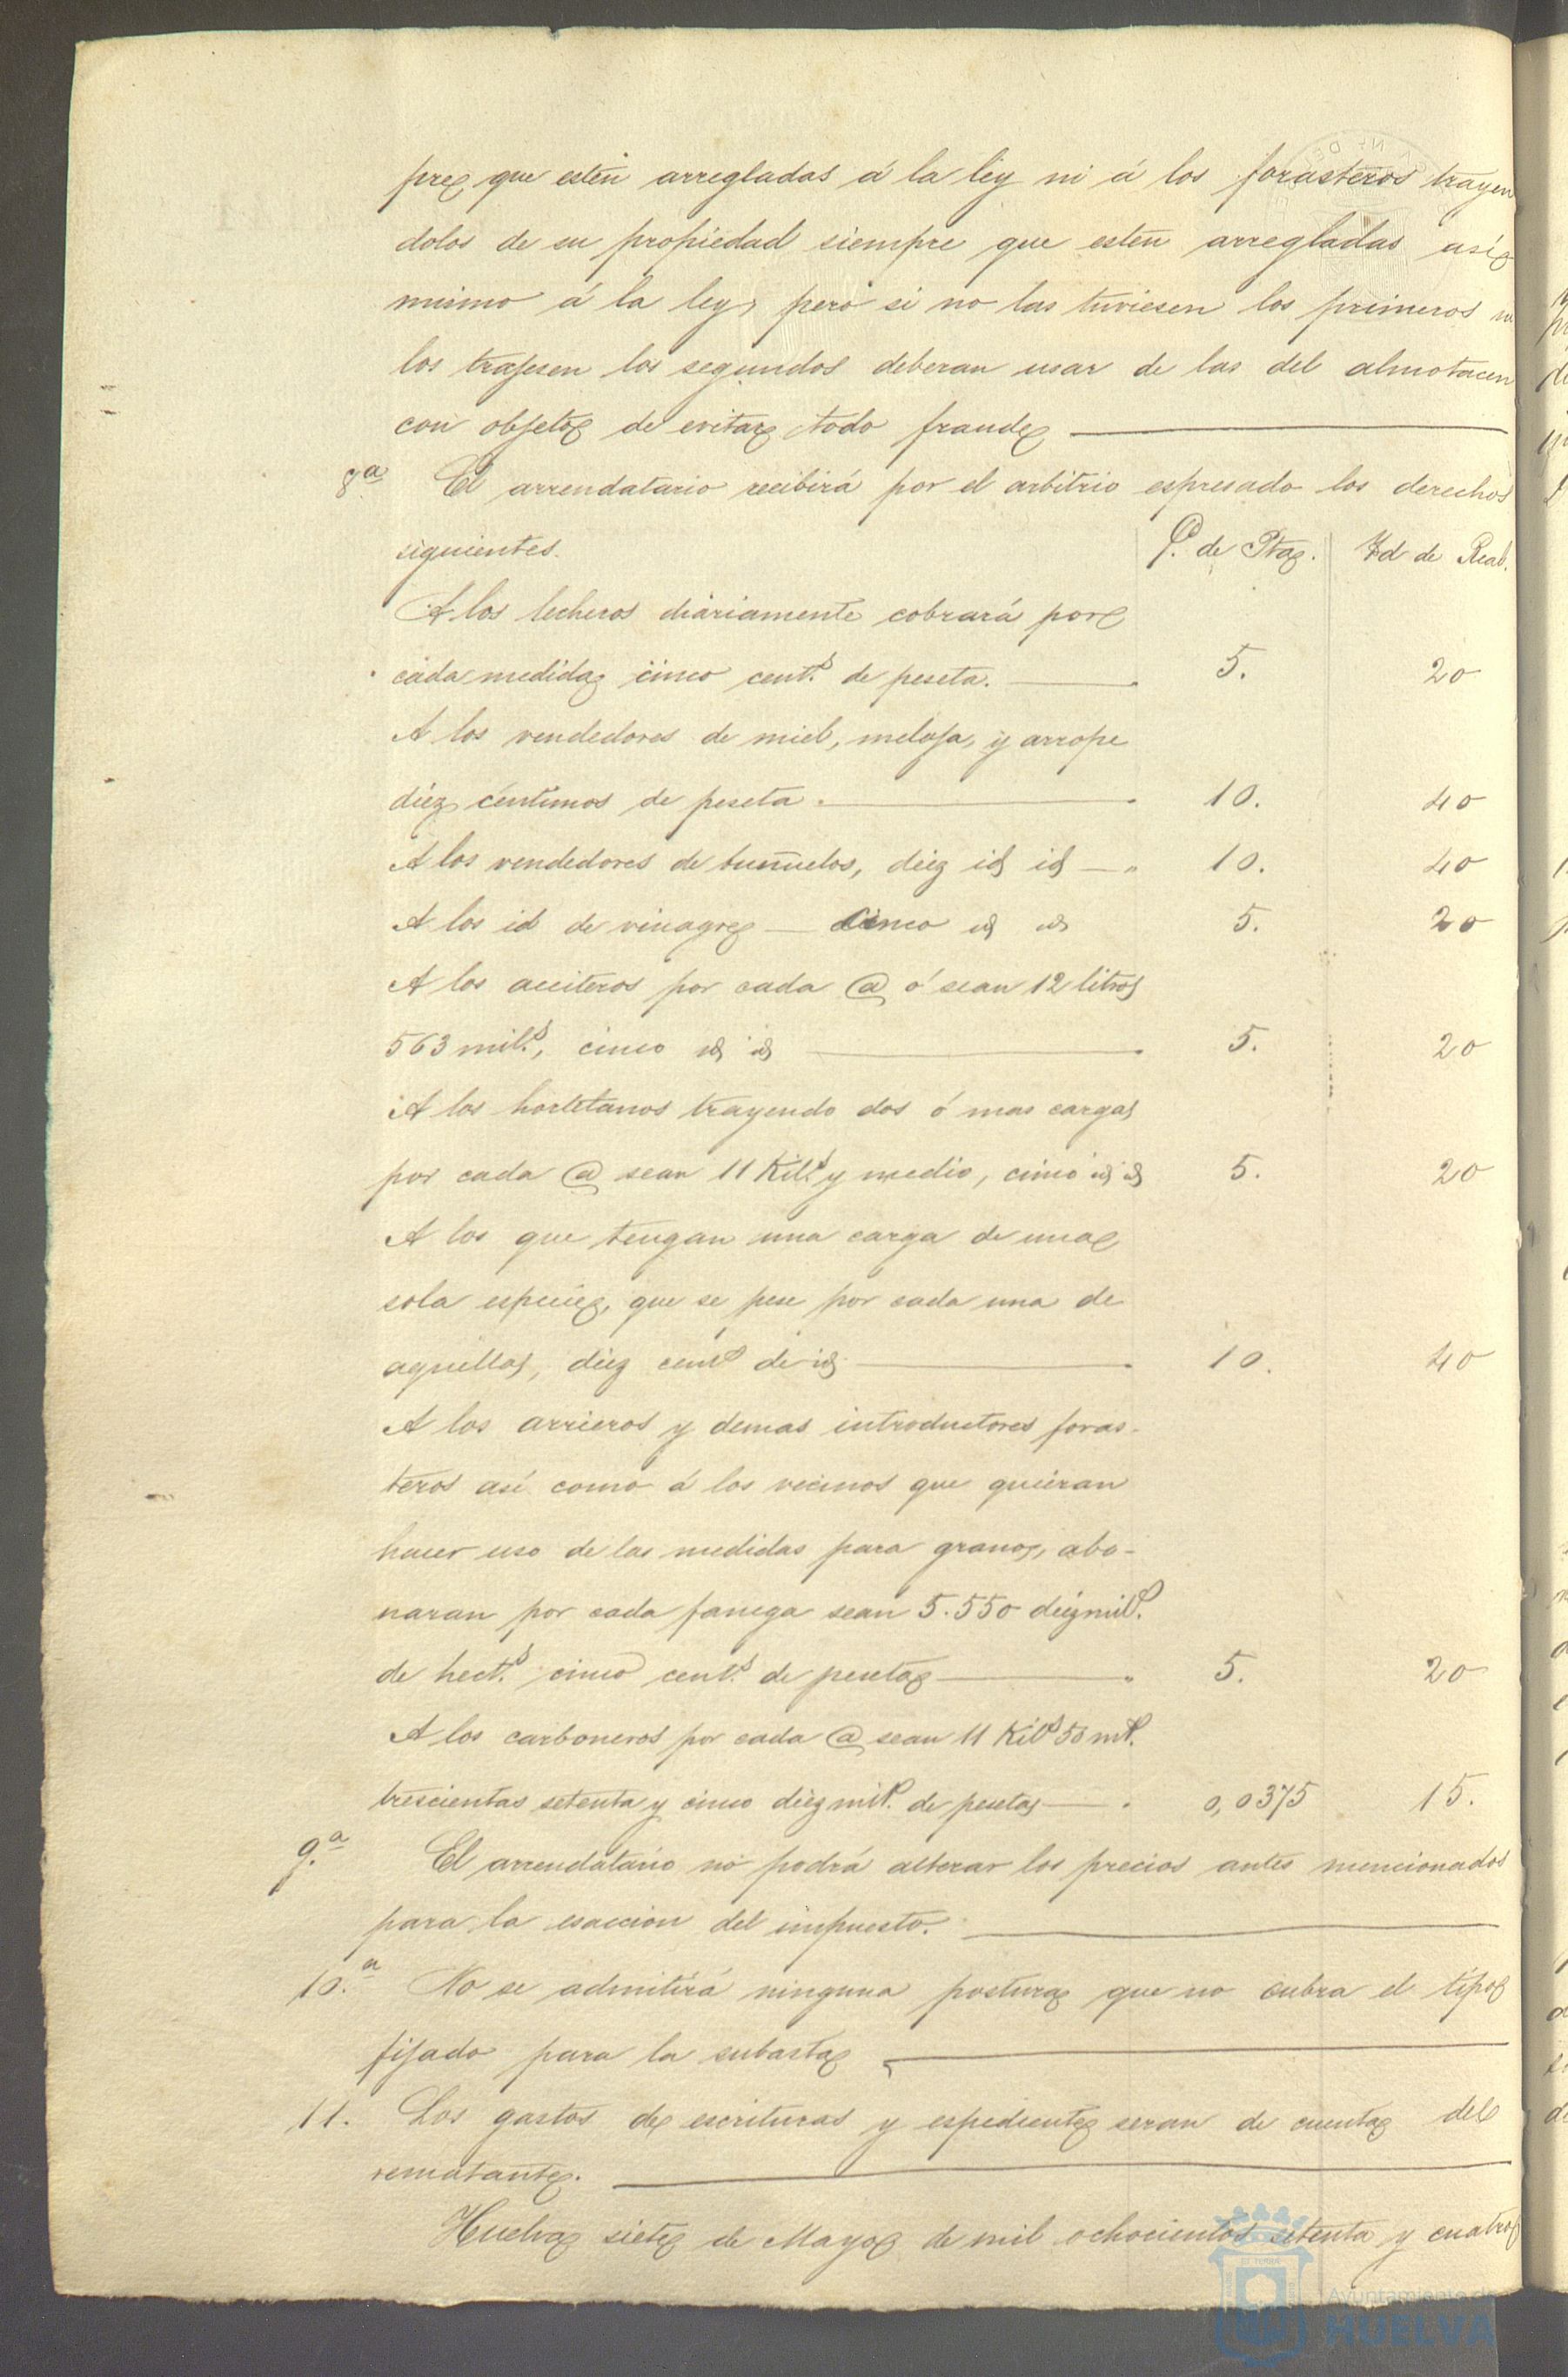 pre que estén arregladas á la ley ni á los forasteros trayen
dolos de su propiedad siempre que esten arregladas asi
mismo á la ley, pero si no las tuviesen los primeros ni
los trajesen los segundos deberan usar de las del almotacen
con objeto de evitar todo fraude
8ª El arrendatario recibirá por el arbitrio espresado los derechos
siguientes. C. de Pta. Id de Real.
A los lecheros diariamente cobrará por
cada medida cinco cent.s de peseta. 5. 20
A los vendedores de miel, meloja, y arrope
diez centimos de peseta. 10. 40
A los vendedores de buñuelos, diez id id 10. 40
A los id de vinagre — cinco id id 5. 20
A los aceiteros por cada @ ó sean 12 litros
563 mil.s, cinco id id 5. 20
A los hortelanos trayendo dos ó mas cargas
por cada @ sean 11 Kil.s y medio, cinco id id 5. 20
A los que tengan una carga de una
sola especie, que se pese por cada una de
aquellas, diez cent.s de id. 10. 40
A los arrieros y demas introductores foras-
teros así como á los vecinos que quieran
hacer uso de las medidas para granos, abo-
naran por cada fanega sean 5.550 diezmil.s
de hect.s cinco cent.s de peseta 5. 20
A los carboneros por cada @ sean 11 Kil.s 50 mil.
trescientas setenta y cinco diezmil.s de pesetas 0,0375 15.
9.ª El arrendatario no podrá alterar los precios antes mencionados
para la esaccion del impuesto.
10.ª No se admitirá ninguna postura que no cubra el tipo
fijado para la subasta
11. Los gastos de escrituras y espediente seran de cuenta del
rematante.
Huelva siete de Mayo de mil ochocientos setenta y cuatro
Ayuntamiento de
HUELVA